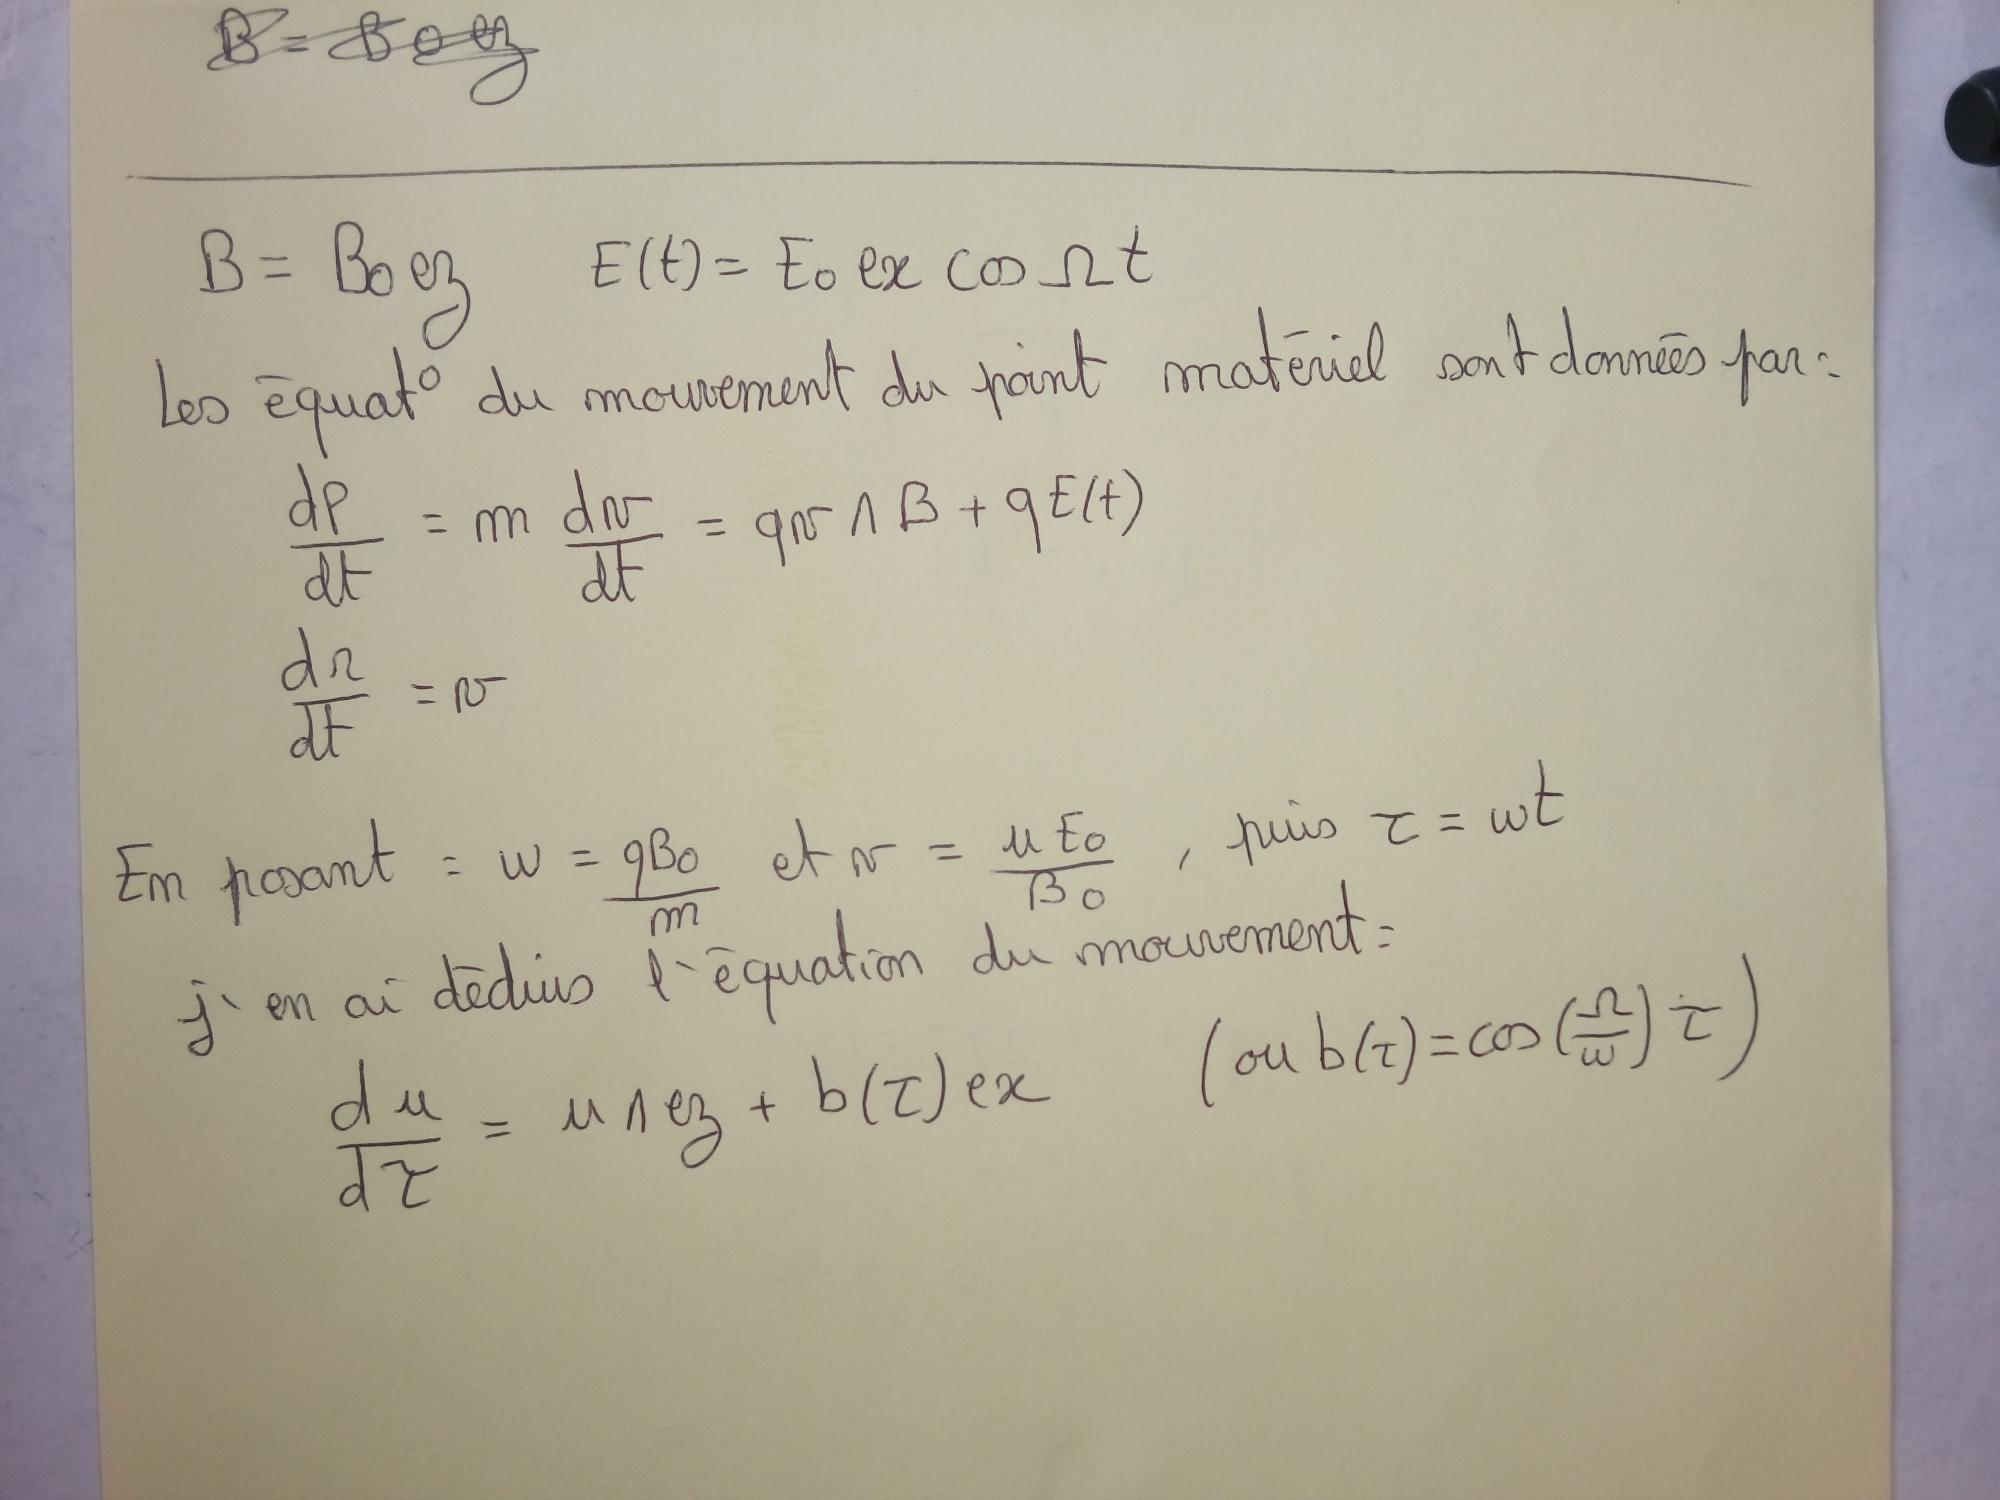 B = B0 ez
B = B0 ez E(t) = E0 ex cos Ω t
Les équat° du mouvement du point matériel sont données par :
dp/dt = m dv/dt = qv ∧ B + qE(t)
dr/dt = v
En posant : w = qB0/m et v = u E0/B0 , puis τ = wt
j'en ai déduis l'équation du mouvement :
du/dτ = u ∧ ez + b(τ) ex (ou b(τ) = cos (Ω/w) τ)